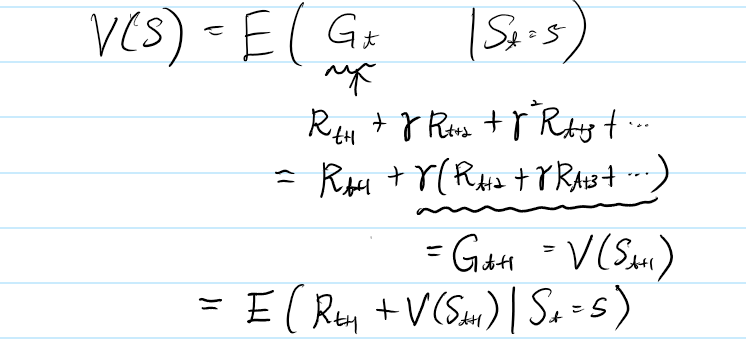 V(S) = E( G_t | S_t = s )
R_{t+1} + γ R_{t+2} + γ² R_{t+3} + ...
= R_{t+1} + γ(R_{t+2} + γR_{t+3} + ...)
= G_{t+1} = V(S_{t+1})
= E( R_{t+1} + V(S_{t+1}) | S_t = s )